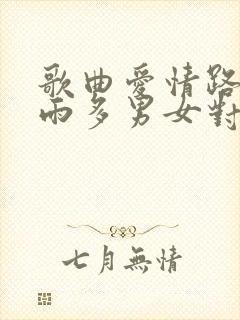 歌曲愛情路
雨多男女對
七月無情